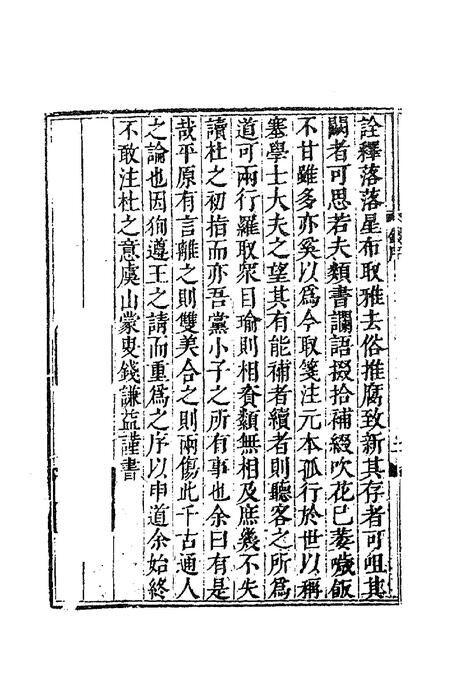 詮釋落落星布取雅去俗推腐致新其存者可咀其
闕者可思若夫類書讕語掇拾補綴吹花已萎噉飯
不甘雖多亦奚以為今取箋注元本孤行於世以稱
塞學士大夫之望其有能補者續者則聽客之所為
道可兩行羅取眾目瑜則相奪類無相及庶幾不失
讀杜之初指而亦吾黨小子之所有事也余曰有是
哉平原有言離之則雙美合之則兩傷此千古通人
之論也因徇遵王之請而重為之序以申道余始終
不敢注杜之意虞山蒙叟錢謙益謹書